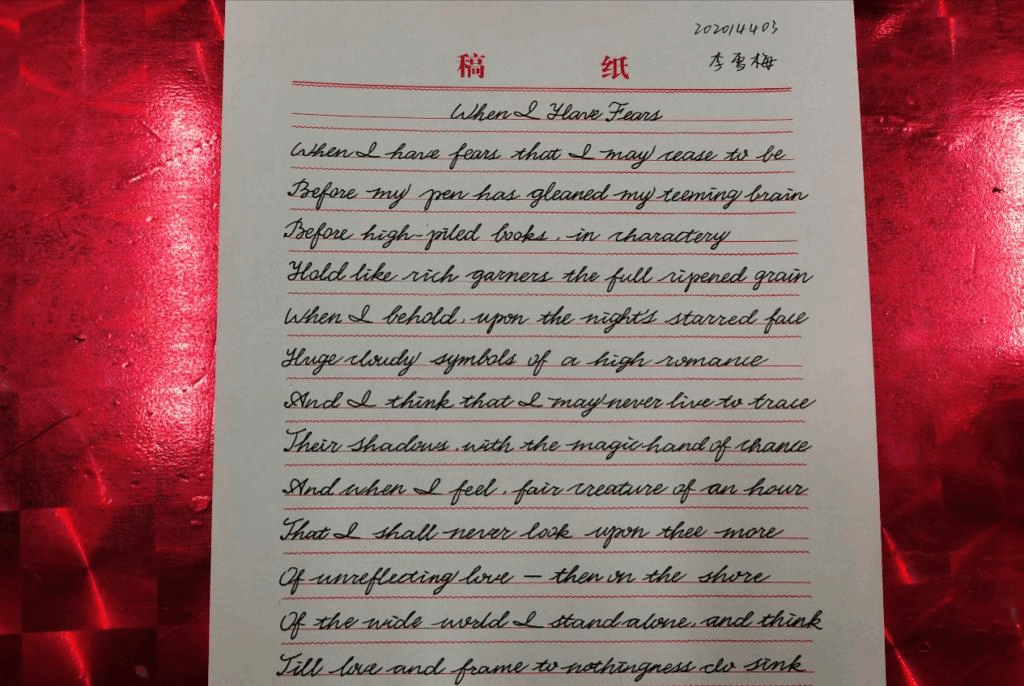 202014403
李雪梅
稿 纸
When I Have Fears
When I have fears that I may cease to be
Before my pen has gleaned my teeming brain
Before high-piled books, in charactery
Hold like rich garners the full ripened grain
When I behold, upon the night's starred face
Huge cloudy symbols of a high romance
And I think that I may never live to trace
Their shadows, with the magic hand of chance
And when I feel, fair creature of an hour
That I shall never look upon thee more
Of unreflecting love — then on the shore
Of the wide world I stand alone, and think
Till love and frame to nothingness do sink